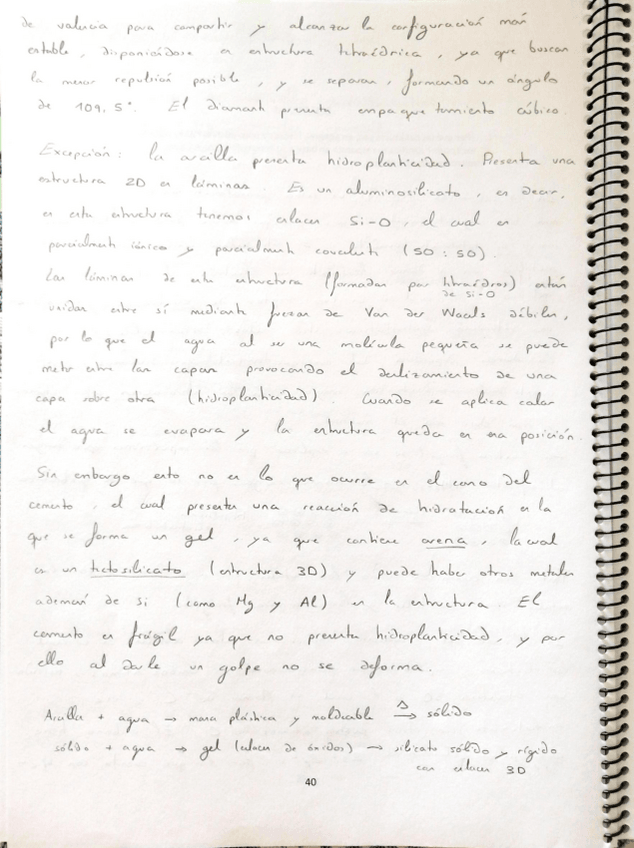 de valencia para compartir y alcanzar la configuración más
estable, disponiéndose en estructura tetraédrica, ya que buscan
la menor repulsión posible, y se separan, formando un ángulo
de 109,5°. El diamante presenta empaquetamiento cúbico.
Excepción: la arcilla presenta hidroplasticidad. Presenta una
estructura 2D en láminas. Es un aluminosilicato, es decir,
en esta estructura tenemos enlaces Si-O, el cual es
parcialmente iónico y parcialmente covalente (50:50).
Las láminas de esta estructura (formadas por tetraedros) están
de Si-O
unidas entre sí mediante fuerzas de Van der Waals débiles,
por lo que el agua al ser una molécula pequeña se puede
meter entre las capas provocando el deslizamiento de una
capa sobre otra (hidroplasticidad). Cuando se aplica calor
el agua se evapora y la estructura queda en esa posición.
Sin embargo esto no es lo que ocurre en el caso del
cemento, el cual presenta una reacción de hidratación en la
que se forma un gel, ya que contiene arena, la cual
es un tectosilicato (estructura 3D) y puede haber otros metales
además de Si (como Mg y Al) en la estructura. El
cemento es frágil ya que no presenta hidroplasticidad, y por
ello al darle un golpe no se deforma.
Arcilla + agua → masa plástica y moldeable →Δ sólido
sólido + agua → gel (enlaces de óxidos) → silicato sólido y rígido
con enlaces 3D
40